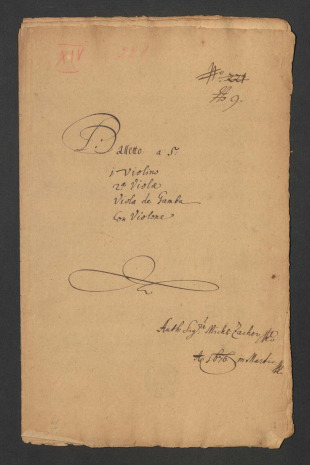 XIV
No 221
No 9.
Balletto a 5.
1 Violino
2a Viola
Viola da Gamba
Con Violone
Auth Sigre Michl Zacher
Ao 1676 m Martio